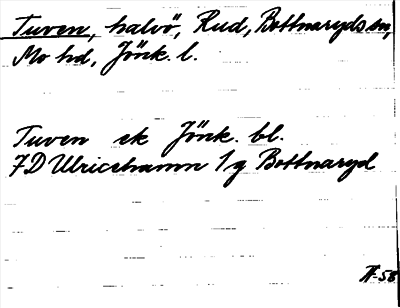 Tuven, halvö, Rud, Bottnaryds sn,
Mo hd, Jönk. l.
Tuven ek Jönk. bl.
7D Ulricehamn 1g Bottnaryd
-58